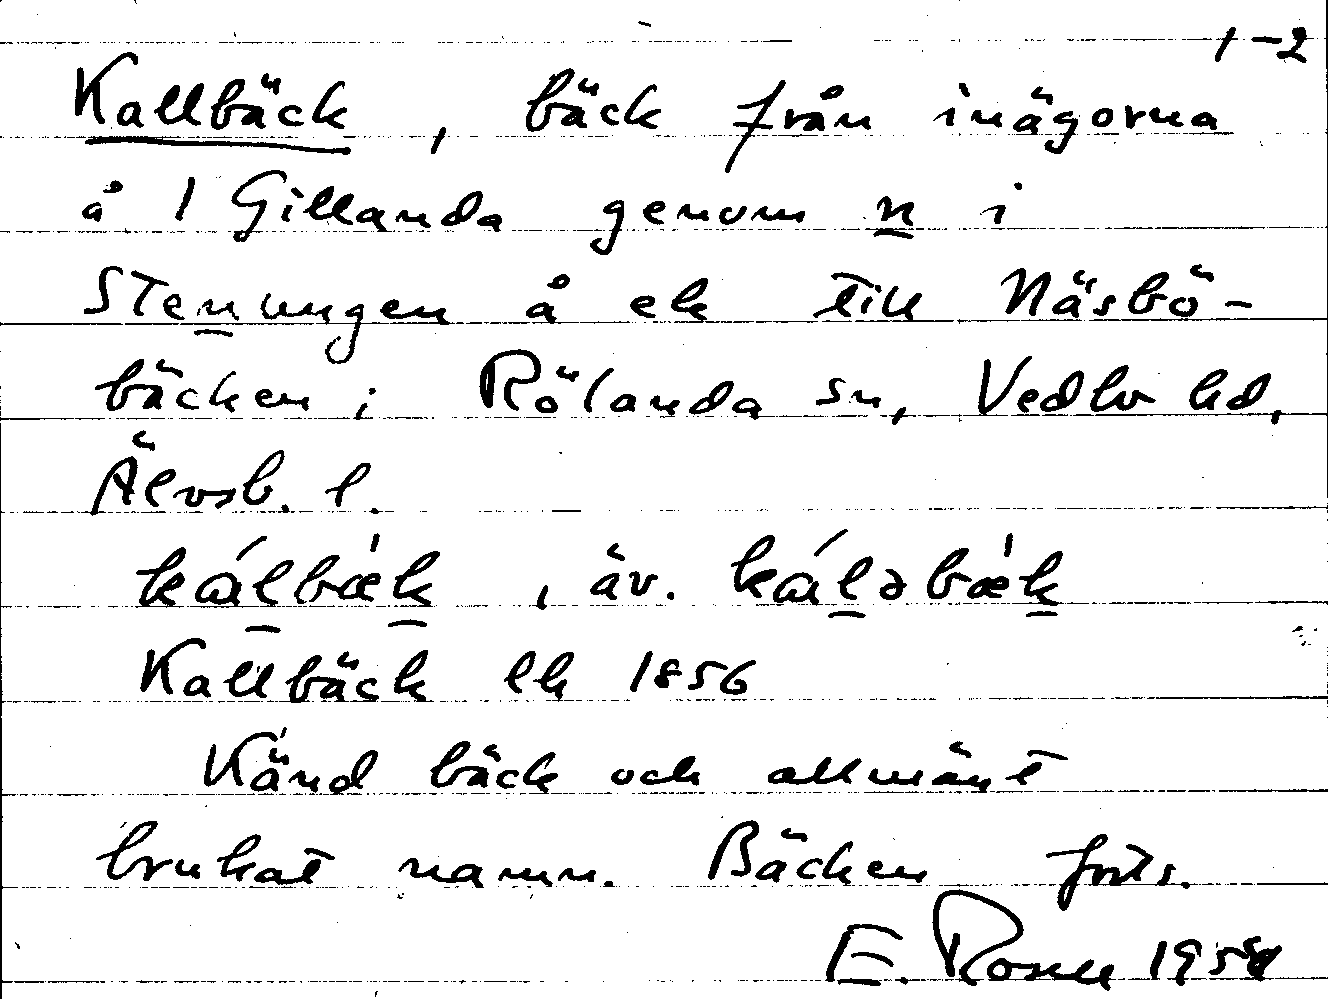 1-2
Kallbäck, bäck från inägorna
å 1 Gillanda genom n i
Stenungen å ek till Näsbö-
bäcken i Rölanda sn, Vedbo hd,
Älvsb. l.
kálbæ̀k, äv. káləbæ̀k
Kallbäck lk 1856
Känd bäck och allmänt
brukat namn. Bäcken forts.
E. Rosell